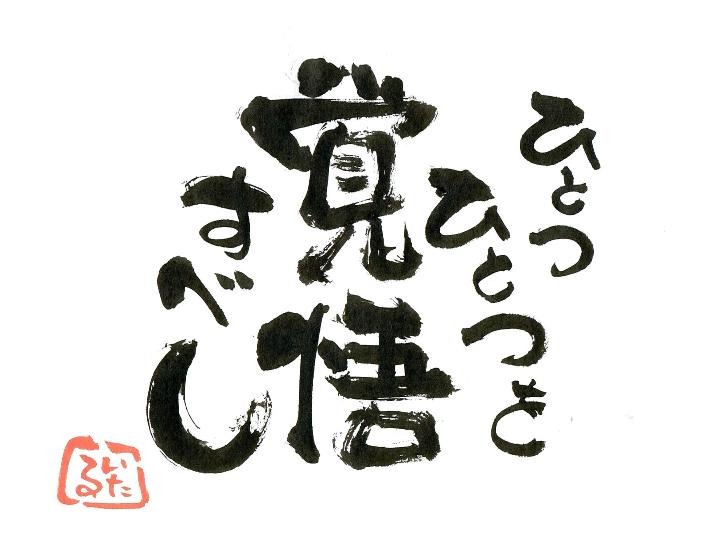 ひとつ
ひとつを
覚悟
すべし
いた
る